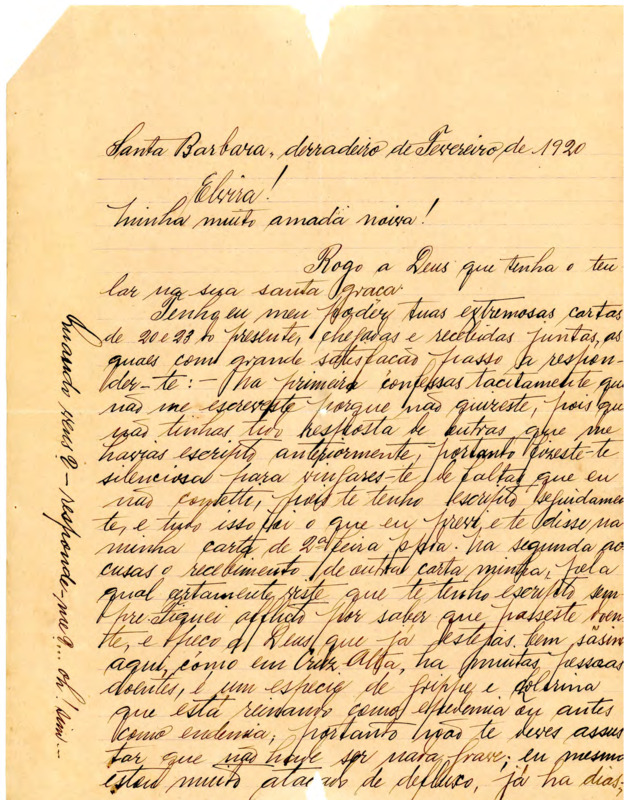 Santa Barbara, derradeiro de Fevereiro de 1920
Elvira!
Minha muito amada noiva!
Rogo a Deus que tenha o teu
lar na sua santa graça.
Tenho eu meu poder, tuas extremosas cartas
de 20 e 23 do presente, chegadas e recebidas juntas, as
quaes com grande satisfacção passo a respon-
der-te: - Na primeira confessas tacitamente que
não me escreveste porque não quizeste, pois que
não tinhas tido resposta de outras que me
havias escripto anteriormente, portanto fizeste-te
silenciosa para vingares-te de faltas que eu
não cometti, pois te tenho escripto seguidamen-
te, e tudo isso foi o que eu previ e te disse na
minha carta de 2ª feira p. Na segunda ac-
cusas o recebimento de outra carta minha, pela
qual certamente viste que te tenho escripto sem-
pre. Fiquei afflicto por saber que passeste doen-
te, e peço a Deus que já estejas bem sã;
aqui, como em Cruz Alta, ha muitas pessoas
doentes, é um especie de grippe e
que está reinando como epedemia ou antes
como endemia; portanto não te deves assus-
tar que não hade ser nada grave; eu mesmo
estou muito atacado de defluxo, já ha dias,
Quando vens? - responde-me?... oh! sim...